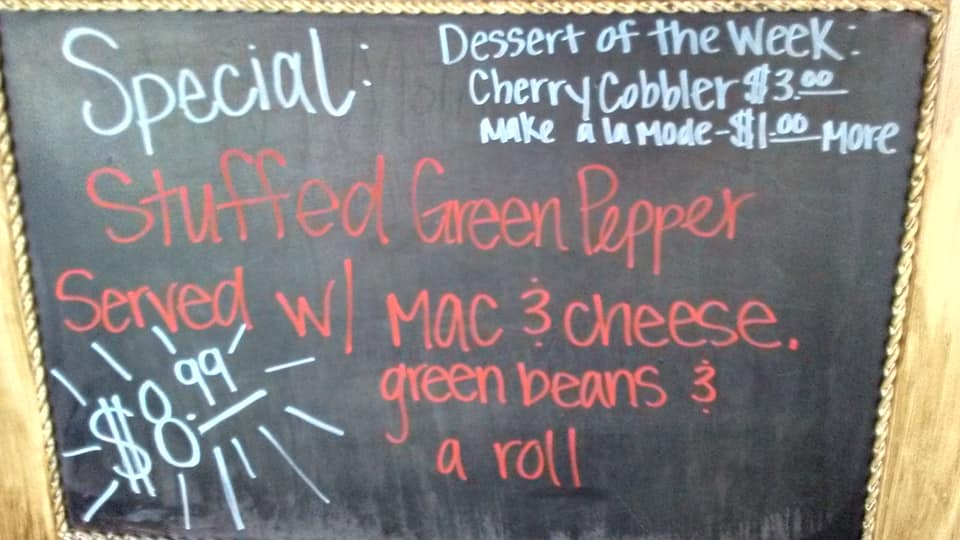 Special:
Dessert of the Week:
Cherry Cobbler $3.00
Make a la Mode - $1.00 More
Stuffed Green Pepper
Served w/ Mac & cheese.
green beans &
a roll
$8.99